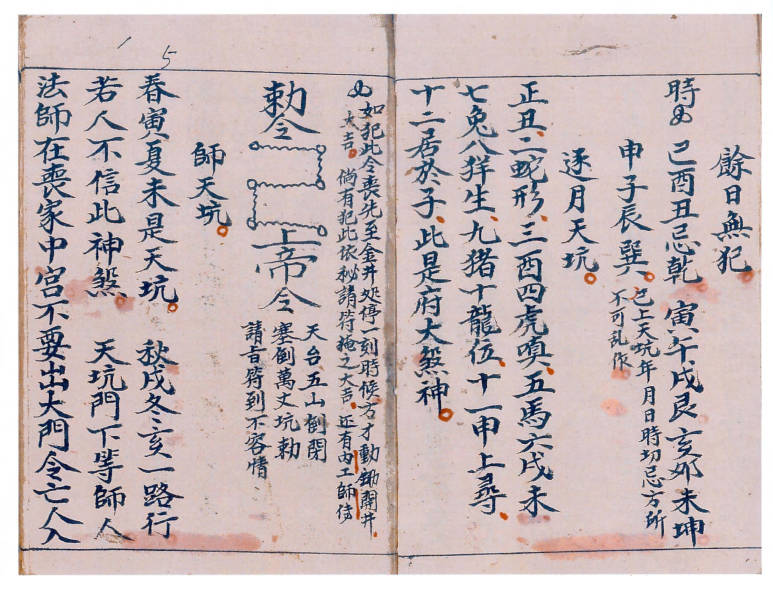 餘日無犯
時凶 巳酉丑忌乾 寅午戌艮 亥卯未坤
申子辰巽 已上天坑年月日時切忌方所
不可乱作
逐月天坑
正丑二蛇形三酉四虎嗔五馬六戌未
七兔八羊生九猪十龍位十一申上尋
十二居於子此是府大煞神
凶 如犯此令丧先至金井处停一刻時候方才動鋤開井
大吉 倘有犯此依秘請符掩之大吉 近有内工師傅
勅令 上帝令
天台五山倒閉
塞倒萬丈坑勅
請吉符到不容情
師天坑
春寅夏未是天坑 秋戌冬亥一路行
若人不信此神煞 天坑門下等師人
法師在喪家中宫不要出大門令亡人入
5